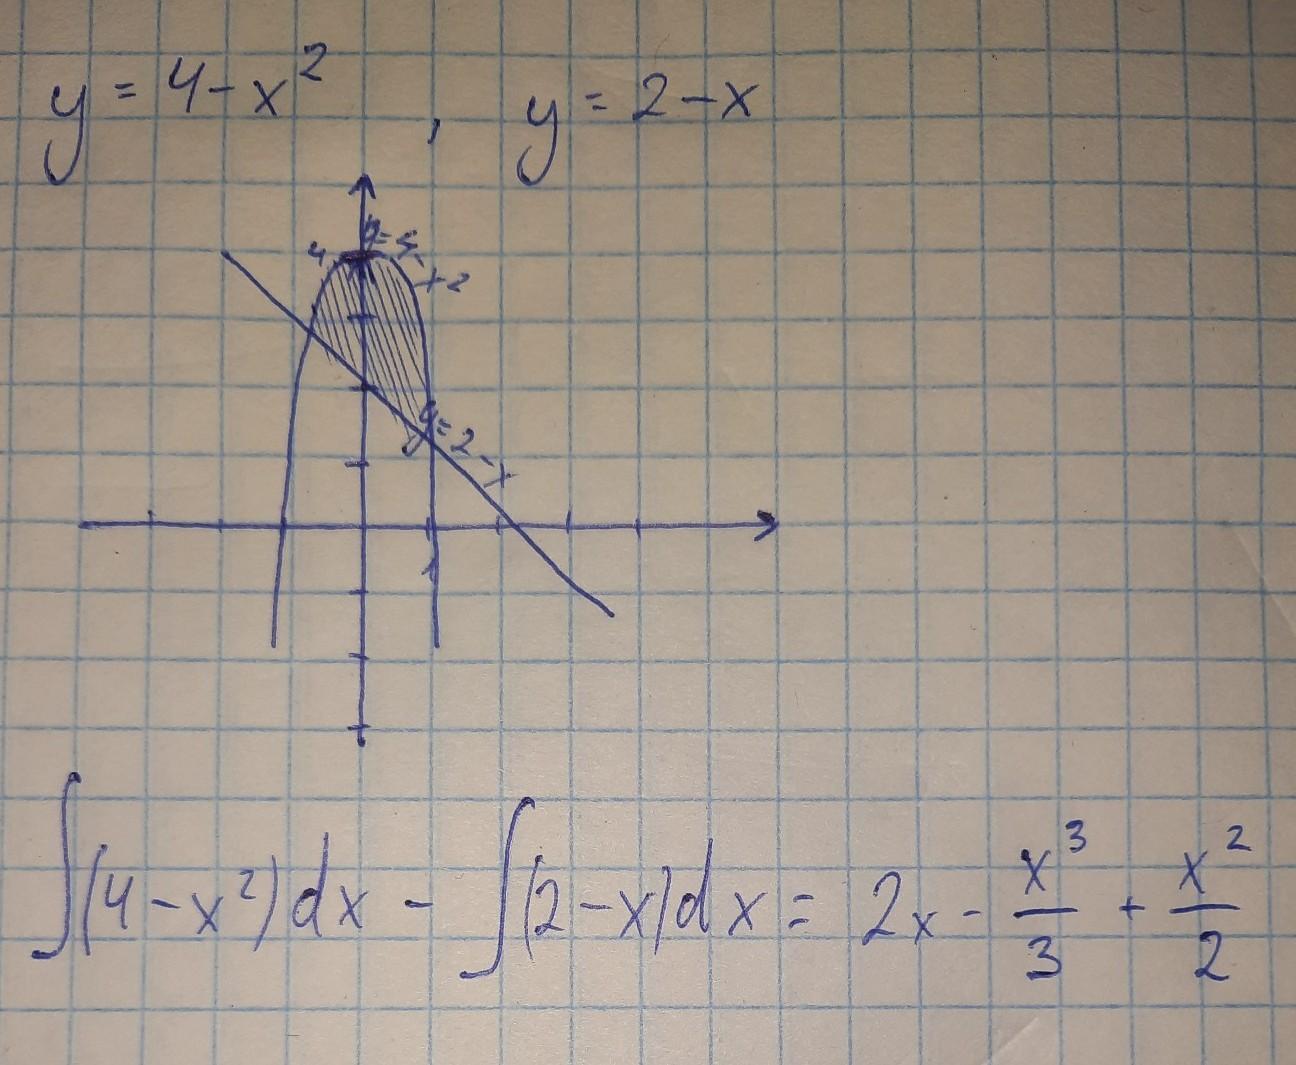 y = 4 - x² , y = 2 - x
4
y = 2 - x
1
∫(4 - x²)dx - ∫(2 - x)dx = 2x - x³/3 + x²/2